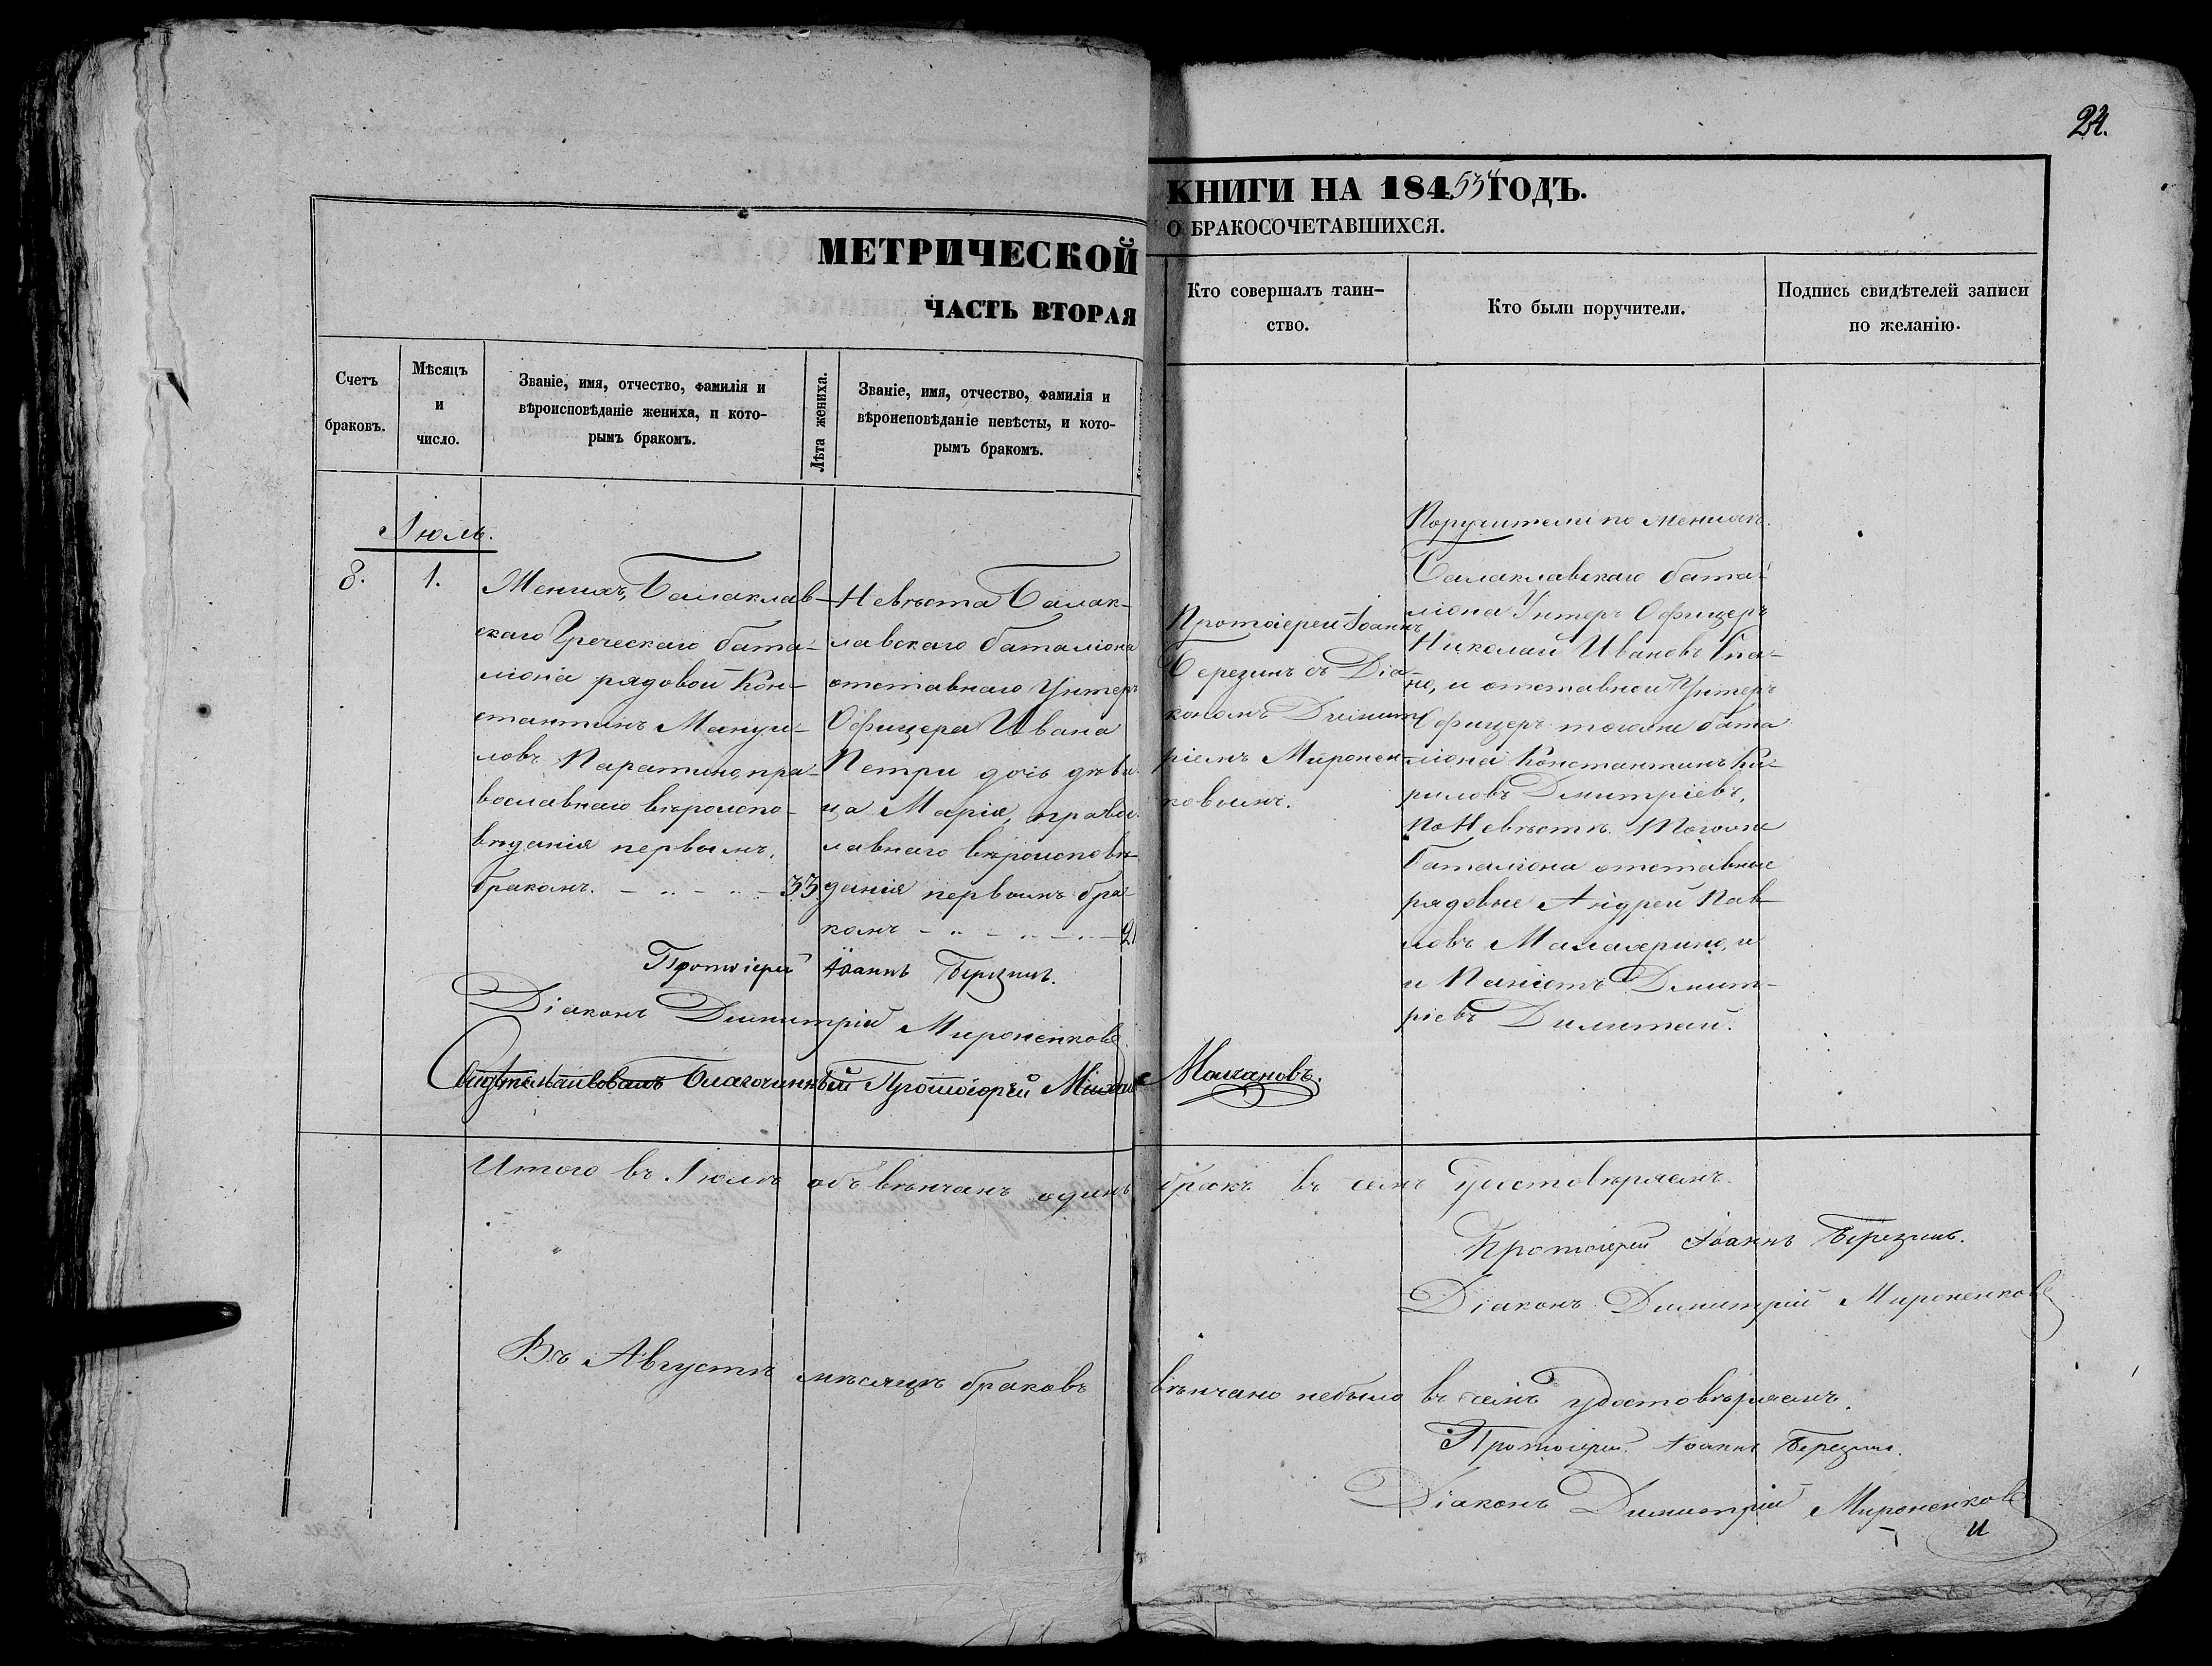 24.
МЕТРИЧЕСКОЙ
ЧАСТЬ ВТОРАЯ
КНИГИ НА 184 ГОДЪ.
О БРАКОСОЧЕТАВШИХСЯ.
Счетъ браковъ.
Мѣсяцъ и число.
Званіе, имя, отчество, фамилія и
вѣроисповѣданіе жениха, и кото-
рымъ бракомъ.
Лѣта жениха.
Званіе, имя, отчество, фамилія и
вѣроисповѣданіе невѣсты, и кото-
рымъ бракомъ.
Кто совершалъ таин-
ство.
Кто были поручители.
Подпись свидѣтелей записи
по желанію.
Іюль.
8.
1.
Женихъ, Балаклав-
скаго Греческаго бата-
ліона рядовой Кон-
стантинъ Мануи-
ловъ Паратино пра-
вославнаго вѣроиспо-
вѣданія первымъ,
бракомъ.
33
Невѣста Балак-
лавскаго баталіона
отставнаго Унтеръ
Офицера Ивана
Петри дочь дѣви-
ца Марія, правос-
лавнаго вѣроисповѣ-
данія первымъ бра-
комъ
21
Протоіерей Іоаннъ
Березинъ съ Діа-
кономъ Димит-
ріемъ Миронен-
ковымъ.
Поручители по женихѣ.
Балаклавскаго бата-
ліона Унтеръ Офицеръ
Николай Ивановъ
но, и отставной Унтеръ
Офицеръ тогоже бата
ліона Константинъ Ки-
риловъ Дмитріевъ,
По Невѣстѣ. Тогоже
Баталіона отставные
рядовые Андрей Пав-
ловъ и
и Паніотъ Дмит-
ріевъ
Протоіерей Іоаннъ Березинъ.
Діаконъ Димитрій Мироненковъ.
Свидѣтельствовалъ Благочинный Протоіерей Михаилъ Молчановъ.
Итого въ Іюлѣ обвѣнчанъ одинъ бракъ въ семъ удостовѣряемъ.
Протоіерей Іоаннъ Березинъ.
Діаконъ Димитрій Мироненковъ
Въ Августѣ мѣсяцѣ браковъ вѣнчано небыло въ семъ удостовѣряемъ.
Протоіерей Іоаннъ Березинъ.
Діаконъ Димитрій Мироненковъ
и